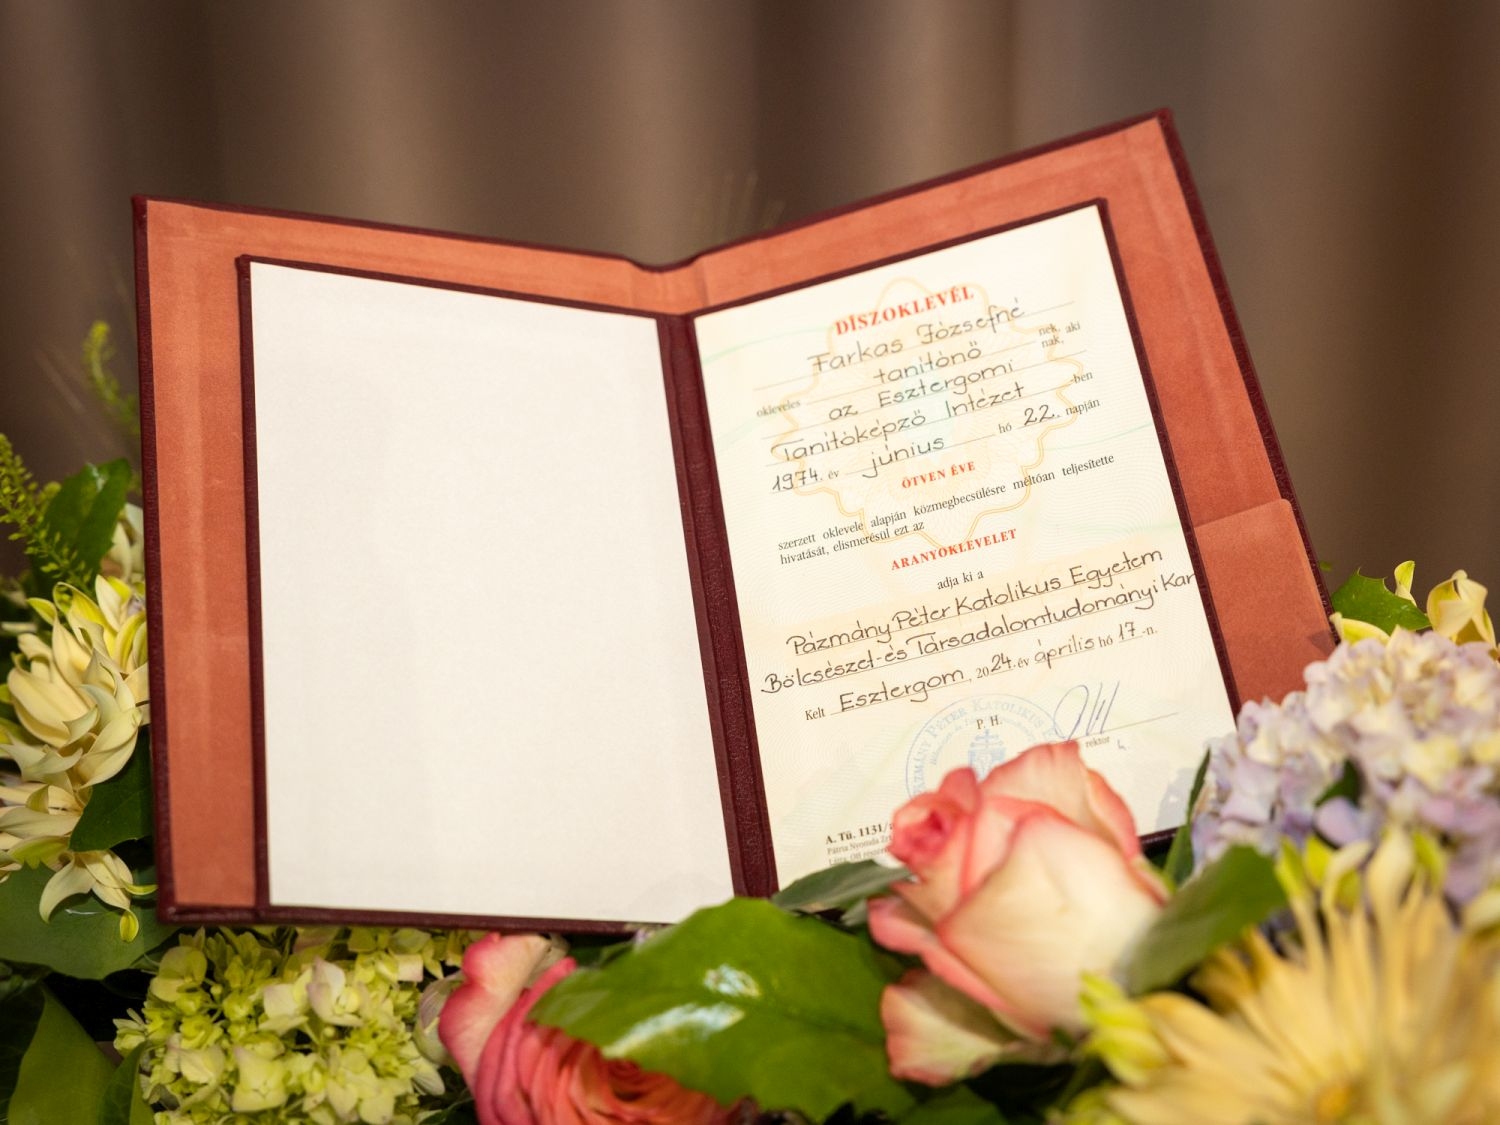 DÍSZOKLEVÉL
Farkas Józsefné nek, aki
nak,
okleveles tanítónő
az Esztergomi
Tanítóképző Intézet -ben
1974. év június hó 22. napján
ÖTVEN ÉVE
szerzett oklevele alapján közmegbecsülésre méltóan teljesítette
hivatását, elismerésül ezt az
ARANYOKLEVELET
adja ki a
Pázmány Péter Katolikus Egyetem
Bölcsészet-és Társadalomtudományi Kar
Kelt Esztergom, 2024. év április hó 17 -n.
P. H.
rektor
PÉTER KATOLIKUS
A. Tü. 1131/
Pátria Nyomda Zrt